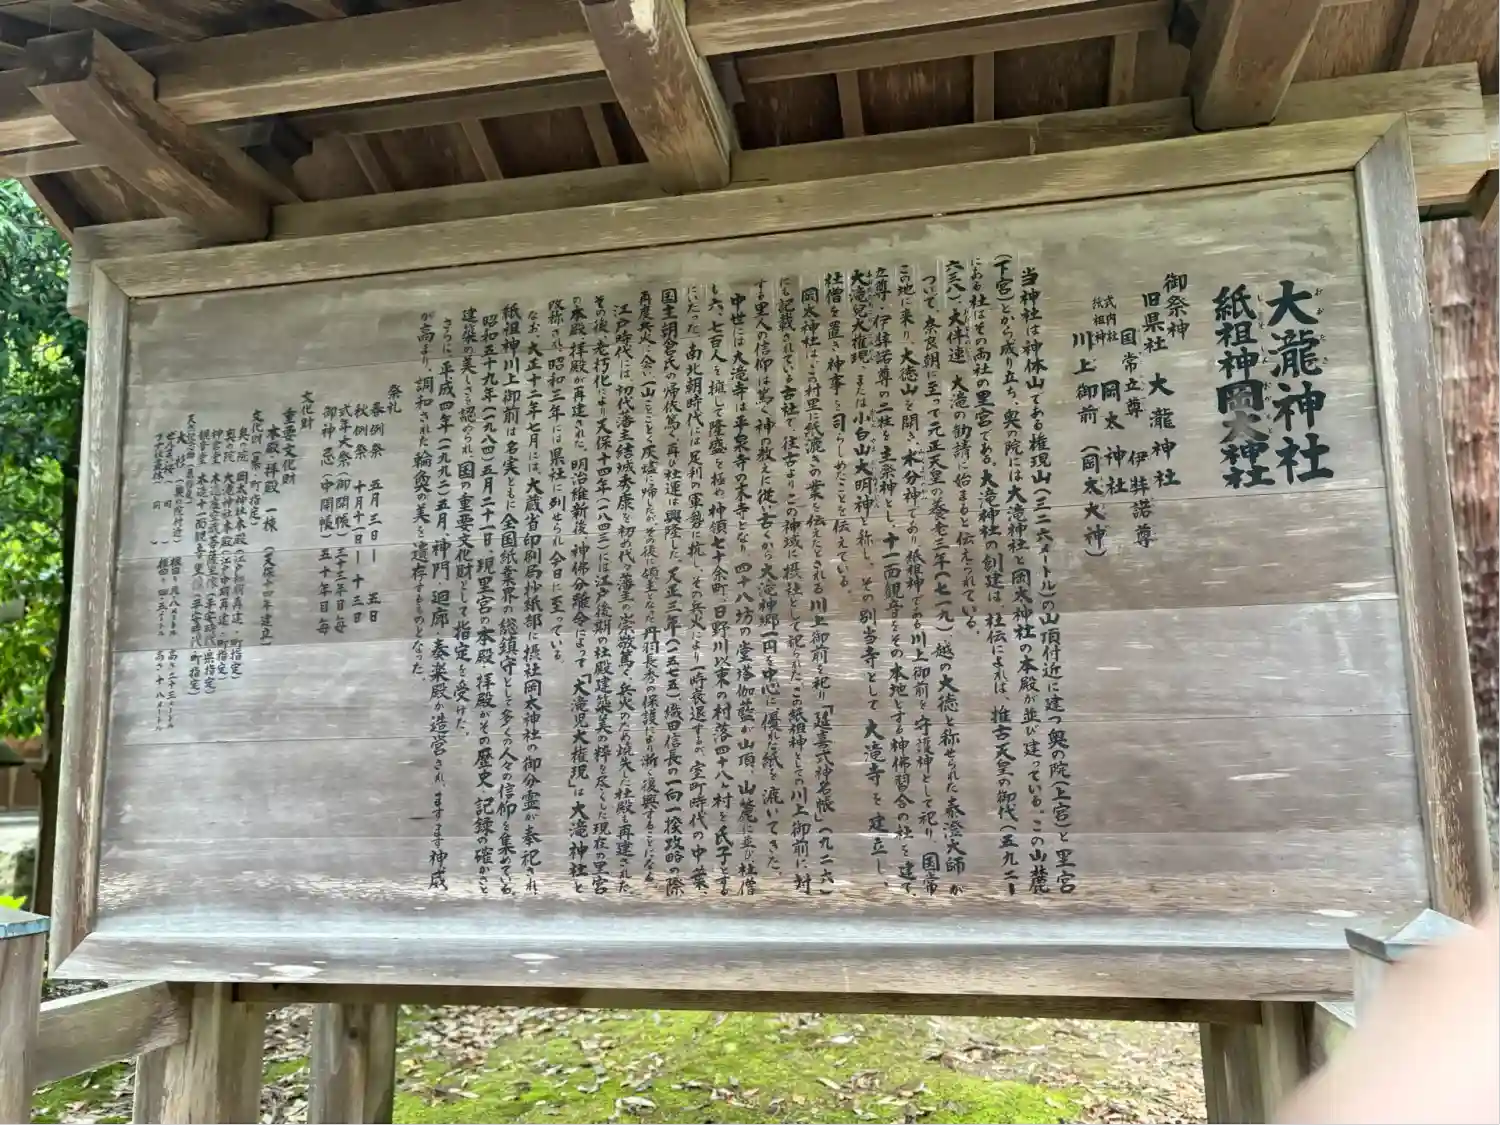 大瀧神社
紙祖神岡太神社
御祭神
旧県社 大瀧神社
国常立尊 伊弉諾尊
式内社 紙祖神 岡太神社
川上御前(岡太大神)
当神社は神体山である権現山(三二六メートル)の山頂付近に建つ奥の院(上宮)と里宮
(下宮)とから成り立ち、奥の院には大滝神社と岡太神社の本殿が並び建っている。この山麓
にある社はその両社の里宮である。大滝神社の創建は、社伝によれば、推古天皇の御代(五九二ー
六三八)大伴連 大滝の勧請に始まると伝えられている。
ついで、奈良朝に至って元正天皇の養老三年(七一九)、越の大徳と称せられた泰澄大師が
この地に来り、大徳山を開き、水分神であり紙祖神である川上御前を守護神として祀り、国常
立尊・伊弉諾尊の二柱を主祭神とし、十一面観音をその本地とする神佛習合の社を建て、
大滝児大権現、または小白山大明神と称し、その別当寺として大滝寺を建立し、
社僧を置き神事を司らしめたことを伝えている。
岡太神社は、この村里に紙漉きの業を伝えたとされる川上御前を祀り「延喜式神名帳」(九二六)
にも記載されている古社で、往古よりこの神域に摂社として祀られた。この紙祖神としての川上御前に対
する里人の信仰は篤く、神の教えに従い古くから大滝神郷一円を中心に優れた紙を漉いてきた。
中世には大滝寺は平泉寺の末寺となり四十八坊の堂塔伽藍が山頂、山麓に並び社僧
も六、七百人を擁して隆盛を極め、神領七十余町、日野川以東の村落四十八ヶ村を氏子とする
にいたった。南北朝時代には足利の軍勢に抗し、その兵火により一時衰退するが、室町時代の中葉、
国主朝倉氏の帰依篤く、再び社運は興隆した。天正三年(一五七五)織田信長の一向一揆攻略の際
再度兵火に会い一山ことごとく灰燼に帰したが、その後に領主となった丹羽長秀の保護により漸く復興することになる。
江戸時代には、初代藩主結城秀康を初め代々藩主の崇敬篤く兵火のため焼失した社殿も再建された。
その後、老朽化により天保十四年(一八四三)には江戸後期の社殿建築美の粋を尽くした現在の里宮
の本殿、拝殿が再建された。明治維新後、神佛分離令によって「大滝児大権現」は大滝神社と
改称され、昭和三年には県社に列せられ今日に至っている。
なお、大正十二年七月には、大蔵省印刷局抄紙部に摂社岡太神社の御分霊が奉祀され、
紙祖神川上御前は名実ともに全国紙業界の総鎮守として多くの人々の信仰を集めている。
昭和五十九年(一九八四)五月二十一日、現里宮の本殿、拝殿がその歴史、記録の確かさと
建築の美しさを認められ、国の重要文化財として指定を受けた。
さらに、平成四年(一九九二)五月、神門、廻廊、奏楽殿が造営され、ますます神威
が高まり、調和された輪奐の美を遺存するものとなった。
祭礼
春例祭 五月三日ー五日
秋例祭 十月十一日ー十三日
式年大祭(御開帳)三十三年目毎
御神忌(中開帳)五十年目毎
文化財
重要文化財
本殿・拝殿 一棟 (天保十四年建立)
文化財(県・町指定)
奥の院 岡太神社本殿(江戸後期再建・町指定)
奥の院 大滝神社本殿(江戸中期再建・町指定)
神宮堂 木造虚空蔵菩薩坐像(平安時代・県指定)
観音堂 木造十一面観音坐像(平安時代・町指定)
天然記念物(県指定)
大杉(奥の院付近) 根回り 九・八メートル 高さ 二十三メートル